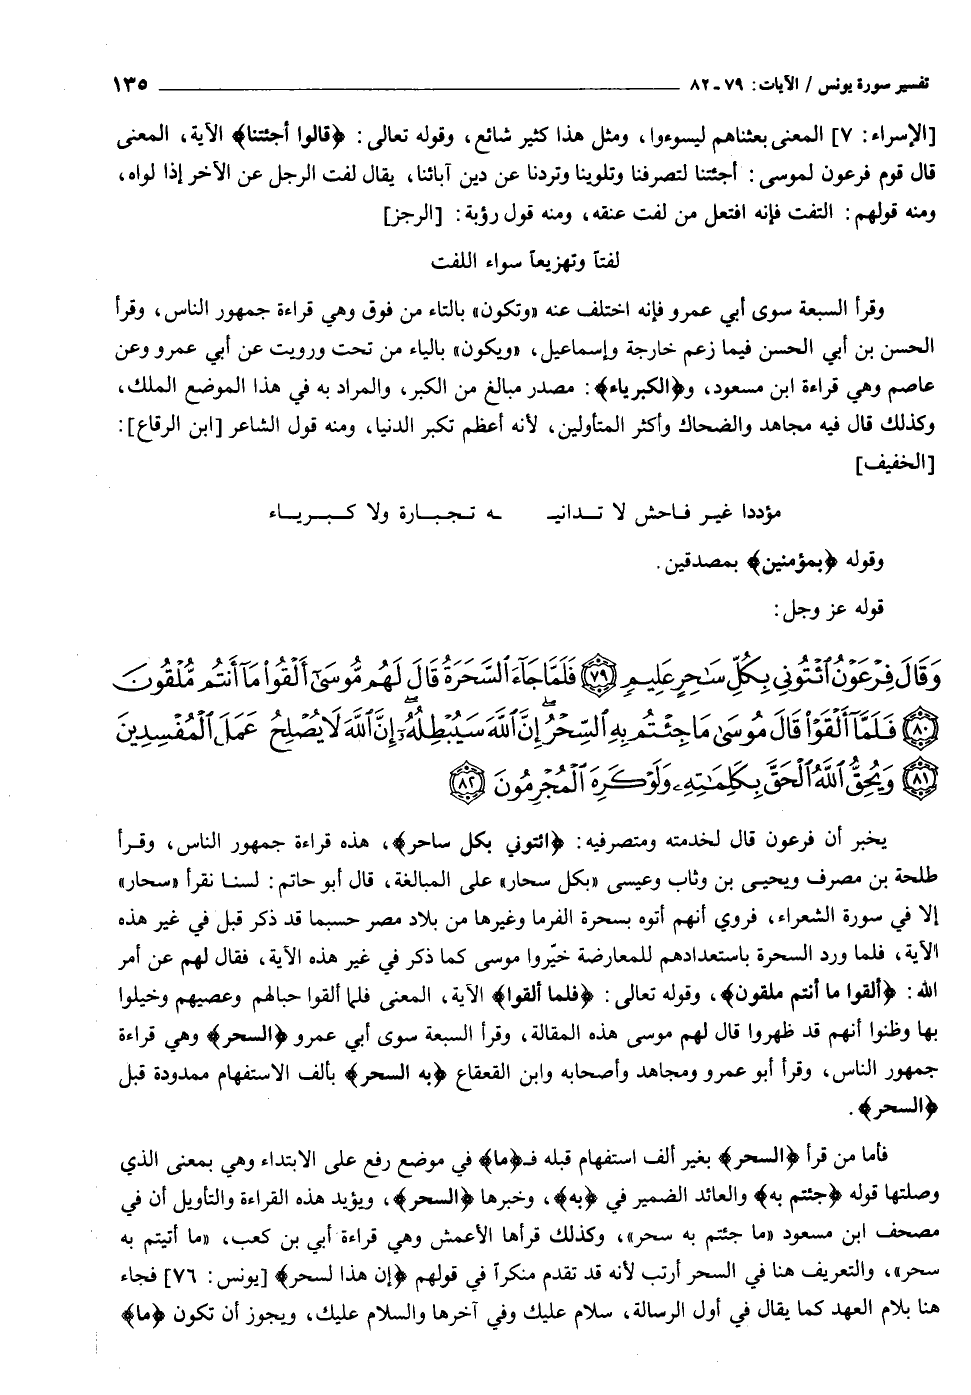 تفسير سورة يونس / الآيات: ٧٩ ـ ٨٢ ١٣٥
[الإسراء: ٧] المعنى بعثناهم ليسوءوا، ومثل هذا كثير شائع، وقوله تعالى: ﴿قالوا أجئتنا﴾ الآية، المعنى
قال قوم فرعون لموسى: أجئتنا لتصرفنا وتلوينا وتردنا عن دين آبائنا، يقال لفت الرجل عن الآخر إذا لواه،
ومنه قولهم: التفت فإنه افتعل من لفت عنقه، ومنه قول رؤبة: [الرجز]
لفتاً وتهزيعاً سواء اللفت
وقرأ السبعة سوى أبي عمرو فإنه اختلف عنه «وتكون» بالتاء من فوق وهي قراءة جمهور الناس، وقرأ
الحسن بن أبي الحسن فيما زعم خارجة وإسماعيل، «ويكون» بالياء من تحت ورويت عن أبي عمرو وعن
عاصم وهي قراءة ابن مسعود، و﴿الكبرياء﴾: مصدر مبالغ من الكبر، والمراد به في هذا الموضع الملك،
وكذلك قال فيه مجاهد والضحاك وأكثر المتأولين، لأنه أعظم تكبر الدنيا، ومنه قول الشاعر [ابن الرقاع]:
[الخفيف]
مؤددا غير فاحش لا تدانيـ ـه تجبارة ولا كبرياء
وقوله ﴿بمؤمنين﴾ بمصدقين.
قوله عز وجل:
وَقَالَ فِرْعَوْنُ ٱئْتُونِي بِكُلِّ سَٰحِرٍ عَلِيمٍ ٧٩ فَلَمَّا جَآءَ ٱلسَّحَرَةُ قَالَ لَهُم مُّوسَىٰٓ أَلْقُوا۟ مَآ أَنتُم مُّلْقُونَ
٨٠ فَلَمَّآ أَلْقَوْا۟ قَالَ مُوسَىٰ مَا جِئْتُم بِهِ ٱلسِّحْرُ إِنَّ ٱللَّهَ سَيُبْطِلُهُۥٓ إِنَّ ٱللَّهَ لَا يُصْلِحُ عَمَلَ ٱلْمُفْسِدِينَ
٨١ وَيُحِقُّ ٱللَّهُ ٱلْحَقَّ بِكَلِمَٰتِهِۦ وَلَوْ كَرِهَ ٱلْمُجْرِمُونَ ٨٢
يخبر أن فرعون قال لخدمته ومتصرفيه: ﴿ائتوني بكل ساحر﴾، هذه قراءة جمهور الناس، وقرأ
طلحة بن مصرف ويحيى بن وثاب وعيسى «بكل سحار» على المبالغة، قال أبو حاتم: لسنا نقرأ «سحار»
إلا في سورة الشعراء، فروي أنهم أتوه بسحرة الفرما وغيرها من بلاد مصر حسبما قد ذكر قبل في غير هذه
الآية، فلما ورد السحرة باستعدادهم للمعارضة خيّروا موسى كما ذكر في غير هذه الآية، فقال لهم عن أمر
الله: ﴿ألقوا ما أنتم ملقون﴾، وقوله تعالى: ﴿فلما ألقوا﴾ الآية، المعنى فلما ألقوا حبالهم وعصيهم وخيلوا
بها وظنوا أنهم قد ظهروا قال لهم موسى هذه المقالة، وقرأ السبعة سوى أبي عمرو ﴿السحر﴾ وهي قراءة
جمهور الناس، وقرأ أبو عمرو ومجاهد وأصحابه وابن القعقاع ﴿به السحر﴾ بألف الاستفهام ممدودة قبل
﴿السحر﴾.
فأما من قرأ ﴿السحر﴾ بغير ألف استفهام قبله فـ﴿ما﴾ في موضع رفع على الابتداء وهي بمعنى الذي
وصلتها قوله ﴿جئتم به﴾ والعائد الضمير في ﴿به﴾، وخبرها ﴿السحر﴾، ويؤيد هذه القراءة والتأويل أن في
مصحف ابن مسعود «ما جئتم به سحر»، وكذلك قرأها الأعمش وهي قراءة أبي بن كعب، «ما أتيتم به
سحر»، والتعريف هنا في السحر أرتب لأنه قد تقدم منكراً في قولهم ﴿إن هذا لسحر﴾ [يونس: ٧٦] فجاء
هنا بلام العهد كما يقال في أول الرسالة، سلام عليك وفي آخرها والسلام عليك، ويجوز أن تكون ﴿ما﴾